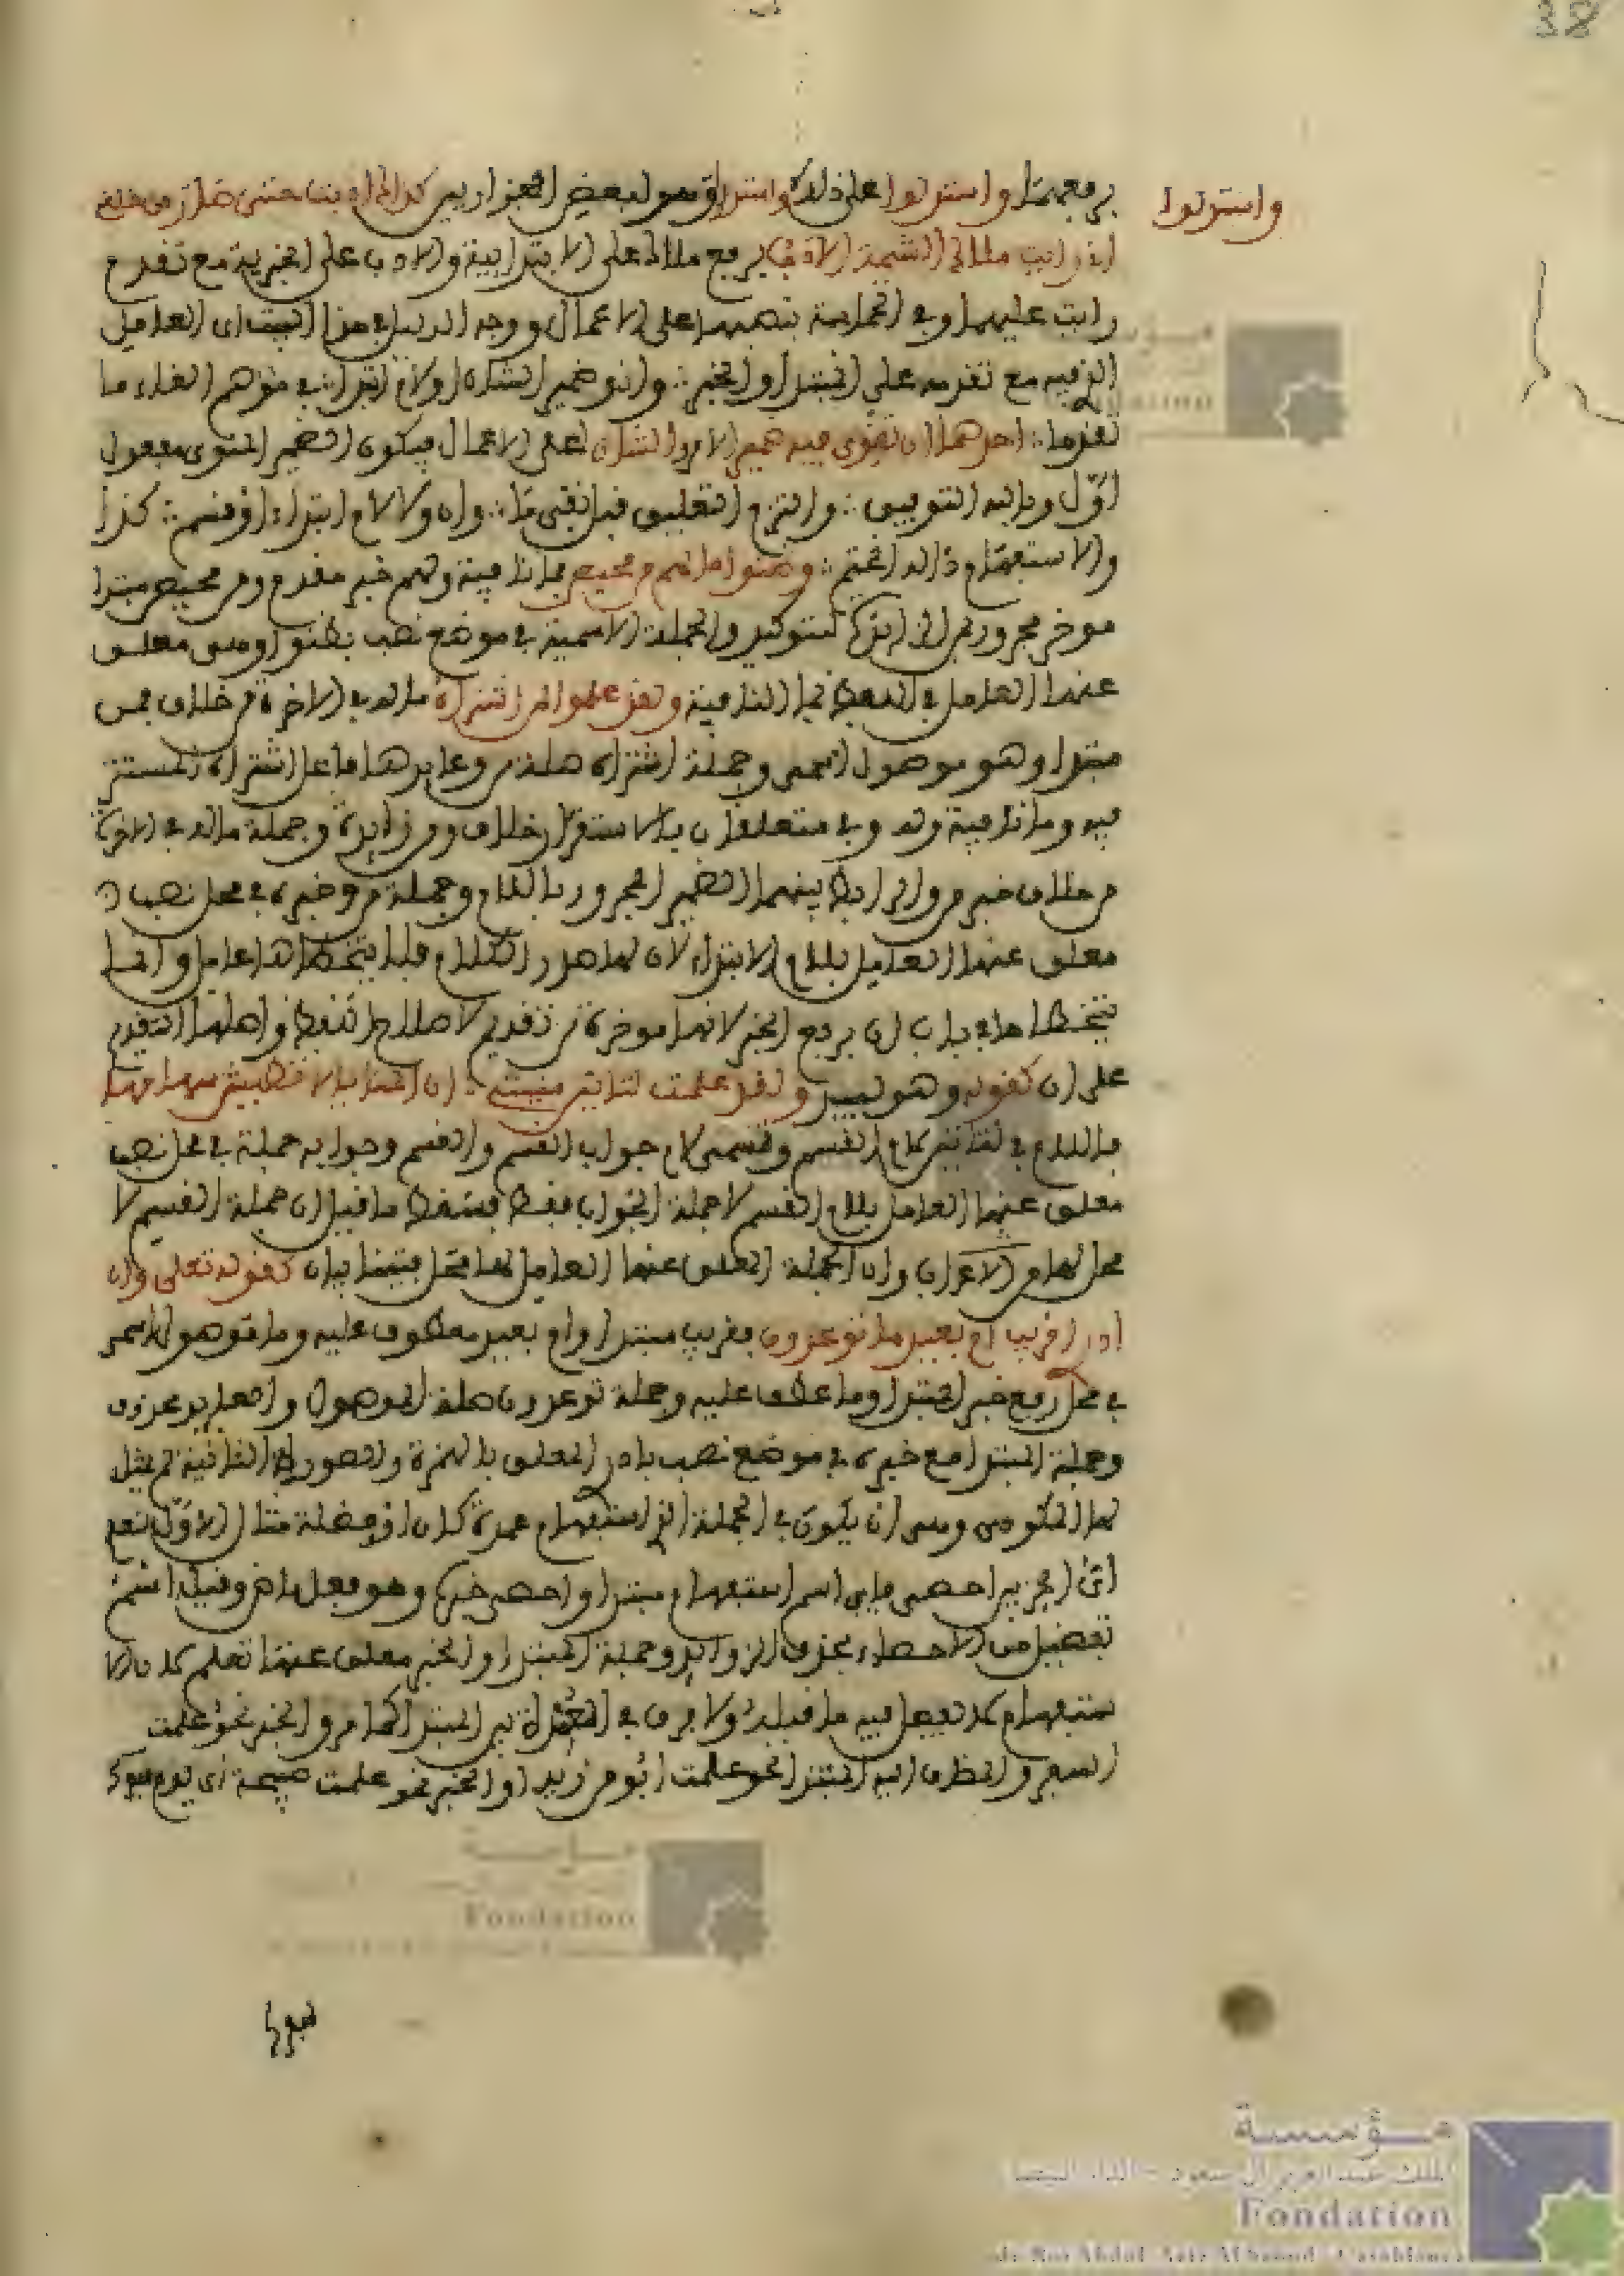 38
واستدلوا
برفعهما واستدلوا على ذلك واستدلوا بقول بعض الفزاريين كذاك ادبت حتى صار من خلقي
اني رايت ملاك الشيمة الادب برفع ملاك على الابتدايية والادب على الخبرية مع تقدم
رايت عليهما وفي الحماسة بنصبهما على الاعمال ووجه الدليل في هذا البيت ان العامل
الغي فيه مع تقدمه على المبتدا والخبر وانو ضمير الشان او لام ابتدا في موهم الغاء ما
تقدما احدهما ان تنوي فيه ضمير الامر والشان على الاعمال فيكون الضمير المنوي مفعول
اول وماله والتزم التعليق قبل نفي ما وان ولا لام ابتداء او قسم كذا
والاستفهام ذا له انحتم وظنوا ما لهم من محيص فما نافية ولهم خبر مقدم ومن محيص مبتدا
موخر مجرور بمن الزايدة للتوكيد والجملة الاسمية في موضع نصب بظنوا وهي معلق
عنها العامل في اللفظ بما النافية ولقد علموا لمن اشتراه ما له في الاخرة من خلاق فمن
مبتدا وهو موصول اسمي وجملة اشتراه صلة من وعايدها فاعل اشتراه المستتر
فيه وما نافية وله وفي متعلقان بالاستقرار خلاق ومن زايدة وجملة ما له في الاخرة
من خلاق خبر من والرابط بينهما الضمير المجرور باللام وجملة من وخبره في محل نصب
معلق عنها العامل بلام الابتداء لان لها صدر الكلام فلا يتخطاها عامل وانما
تخطاها في باب ان برفع الخبر لانها موخرة من تقديم لاصلاح اللفظ واصلها التقديم
على ان كقوله وهو لبيد ولقد علمت لتاتين منيتي ان المنايا لا تطيش سهامها
فاللام في لتاتين لام القسم وتسمى لام جواب القسم والقسم وجوابه جملة في محل نصب
معلق عنها العامل بلام القسم لا جملة الجواب فقط فسقط ما قيل ان جملة القسم لا
محل لها من الاعراب وان الجملة المعلق عنها العامل لها محل فيتنافيان كقوله تعلى وان
ادري اقريب ام بعيد ما توعدون فقريب مبتدا وام بعيد معطوف عليه وما موصول اسمي
في محل رفع خبر المبتدا وما عطف عليه وجملة توعدون صلة الموصول والعايد محذوف
وجملة المبتدا مع خبره في موضع نصب بادري المعلق بالهمزة والصورة الثانية لم يمثل
لها المكودي وهي ان يكون في الجملة اسم استفهام عمدة كان او فضلة مثال الاول لنعلم
اي الحزبين احصى فاي اسم استفهام مبتدا واحصى خبره وهو فعل ماض وقيل اسم
تفضيل من الاحصاء بحذف الزوايد وجملة المبتدا والخبر معلق عنها نعلم لان الا
ستفهام لا يعمل فيه ما قبله ولا فرق في العمدة بين المبتدا كما مر والخبر نحو علمت
السفر والمضاف اليه المبتدا نحو علمت ابو من زيد او الخبر نحو علمت صبيحة اي يوم سفرك